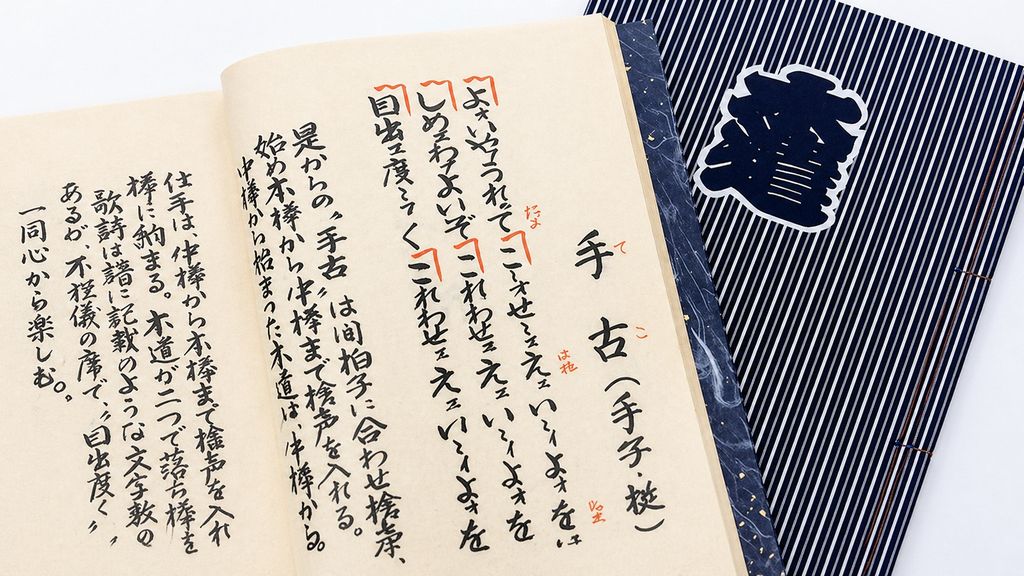 手古（手子・梃）
て こ
よオいやアうれてこゝオせェえェいゝイよオをは
しめろわァよいぞこれわせェえェいゝイよオを
目出エ度ゝくこれわせェえェいゝイよオを
是からの〝手古〟は間拍子に合わせ捨声、
始め本棒から中棒まで捨声を入れる。
中棒から始まった木道は、中棒から。
仕手は中棒から本棒まで捨声を入れ
棒に納まる。木道が二つで落ち棒を
歌詩は譜に記載のような文字数の
あるが、不儀の席で、〝目出度く〟
一同心から楽しむ。